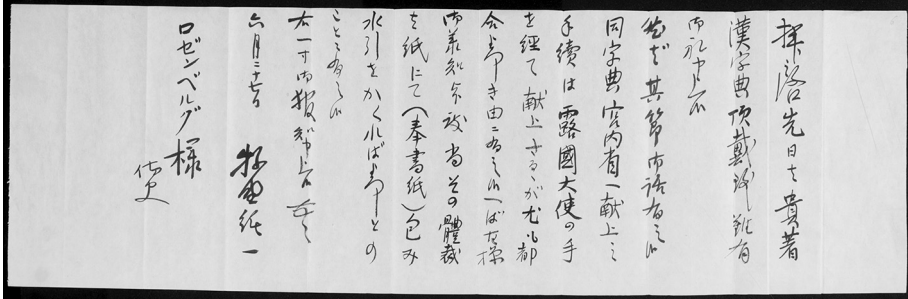 拝啓先日は貴著
漢字典頂戴致難有
御礼申上候
其節御話有之候
同字典宮内省へ献上之
手續は露國大使の手
を経て献上するが尤も都
合宜き由ニ有之候へば左様
御承知被成 尚その體裁
は紙にて(奉書紙)包み
水引をかくれば宜しとの
ことニ有之候
右一寸御報知申上候
六月二十七日
ロゼンベルグ様